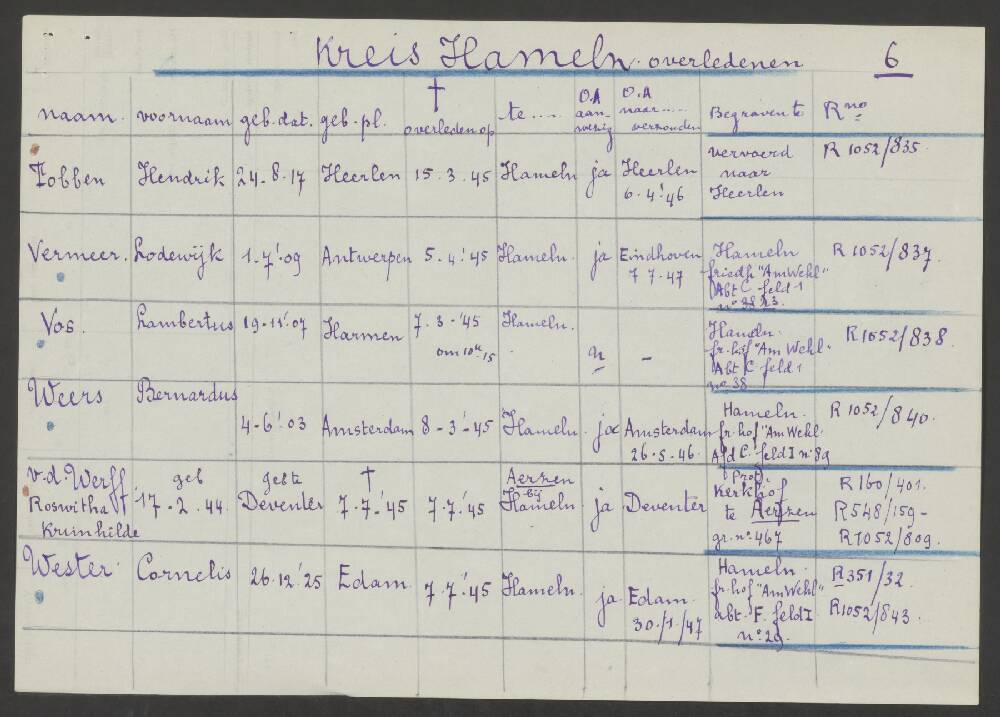 Kreis Hameln. overledenen 6
naam. voornaam geb. dat. geb. pl. † overleden op te .... O.A aanwezig O.A naar..... verzonden Begraven te R no
Fobben Hendrik 24-8-17 Heerlen 15.3.45 Hameln ja Heerlen 6.4.'46 vervoerd naar Heerlen R 1052/835.
Vermeer. Lodewijk 1.7'.09 Antwerpen 5.4.'45 Hameln. ja Eindhoven 7 7.47 Hameln friedh "Am Wehl" Abt C feld 1 R 1052/837.
Vos. Lambertus 19-11'.07 Harmen 7.3-'45 om 10u.15 Hameln. n - Hameln. fr. hof "Am Wehl. Abt C feld 1 no 38 R 1052/838
Weers Bernardus 4-6'.03 Amsterdam 8-3-'45 Hameln. ja Amsterdam 26.5.46. Hameln. fr. hof "Am Wehl. Afd C. feld I no 89 R 1052/840.
v.d. Werff. Roswitha Krimhilde geb 17-2.44. geste Deventer † 7.7-'45 7.7.'45 Aerzen bij Hameln ja Deventer Prot. Kerkhof te Aerzen gr. no 467 R160/401. R548/159- R1052/809.
Wester. Cornelis 26.12.'25 Edam. 7.7.'45 Hameln. ja Edam. 30./1./47 Hameln. fr. hof "Am Wehl" abt. F. feld I no 29. R351/32. R1052/843.